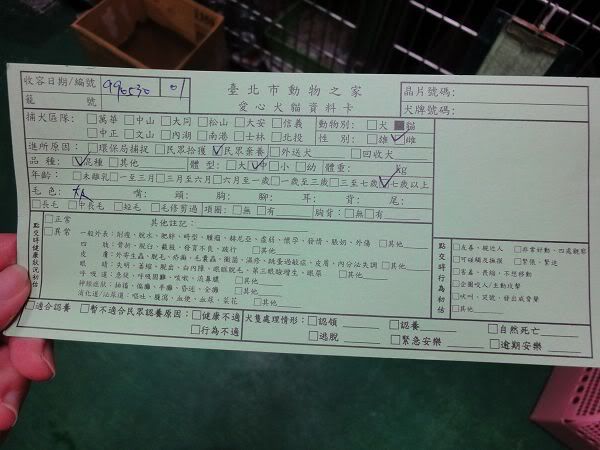 收容日期/編號 990530 01
籠 號
臺北市動物之家
愛心犬貓資料卡
晶片號碼:
犬牌號碼:
捕犬區隊: □萬華 □中山 □大同 □松山 □大安 □信義
□中正 □文山 □內湖 □南港 □士林 □北投
動物別: □犬 ■貓
性 別: □雄 ☑雌
進所原因: □環保局捕捉 □民眾拾獲 ☑民眾棄養 □外送犬 □回收犬
品 種: ☑混種 □其他 體 型: □大 ☑中 □小 □幼 體重: kg
年齡: □未離乳 □一至三月 □三月至六月 □六月至一歲 □一歲至三歲 □三歲至七歲 ☑七歲以上
毛 色: 嘴: 頭: 胸: 腳: 耳: 背: 尾:
□長毛 □中長毛 □短毛 □毛修剪過 項圈: □無 □有 胸背: □無 □有
點交時健康狀況初估
□正常
□異常
其他註記:
一般外表: 削瘦、脫水、肥胖、畸型、腫瘤、赫尼亞、虛弱、懷孕、發情、脹奶、外傷 □其他
四 肢: 骨折、脫臼、截肢、發育不良、跛行 □其他
皮 膚: 外寄生蟲、脫毛、疥癬、毛囊蟲、黴菌、濕疹、跳蚤過敏症、皮屑、內分泌失調 □其他
眼 睛: 失明、萎縮、脫出、白內障、眼瞼脫毛、第三眼瞼增生、眼屎 □其他
呼 吸 道: 急促、呼吸困難、咳嗽、流鼻膿 □其他
神經症狀: 抽搐、偏癱、半癱、昏迷、全癱 □其他
消化道/泌尿道: 嘔吐、腹瀉、血便、血尿、祟花 □其他
點交時行為初估
□友善、親近人 □非常好動、四處觀察
□可碰觸及撫摸 □緊張、緊迫
□害羞、畏縮、不想移動
□企圖咬人/主動攻擊
□吠叫、哭號、發出威脅聲
□其他
□適合認養 □暫不適合民眾認養原因: □健康不適
□行為不適
犬隻處理情形: □認領 □認養 □自然死亡
□逃脫 □緊急安樂 □逾期安樂